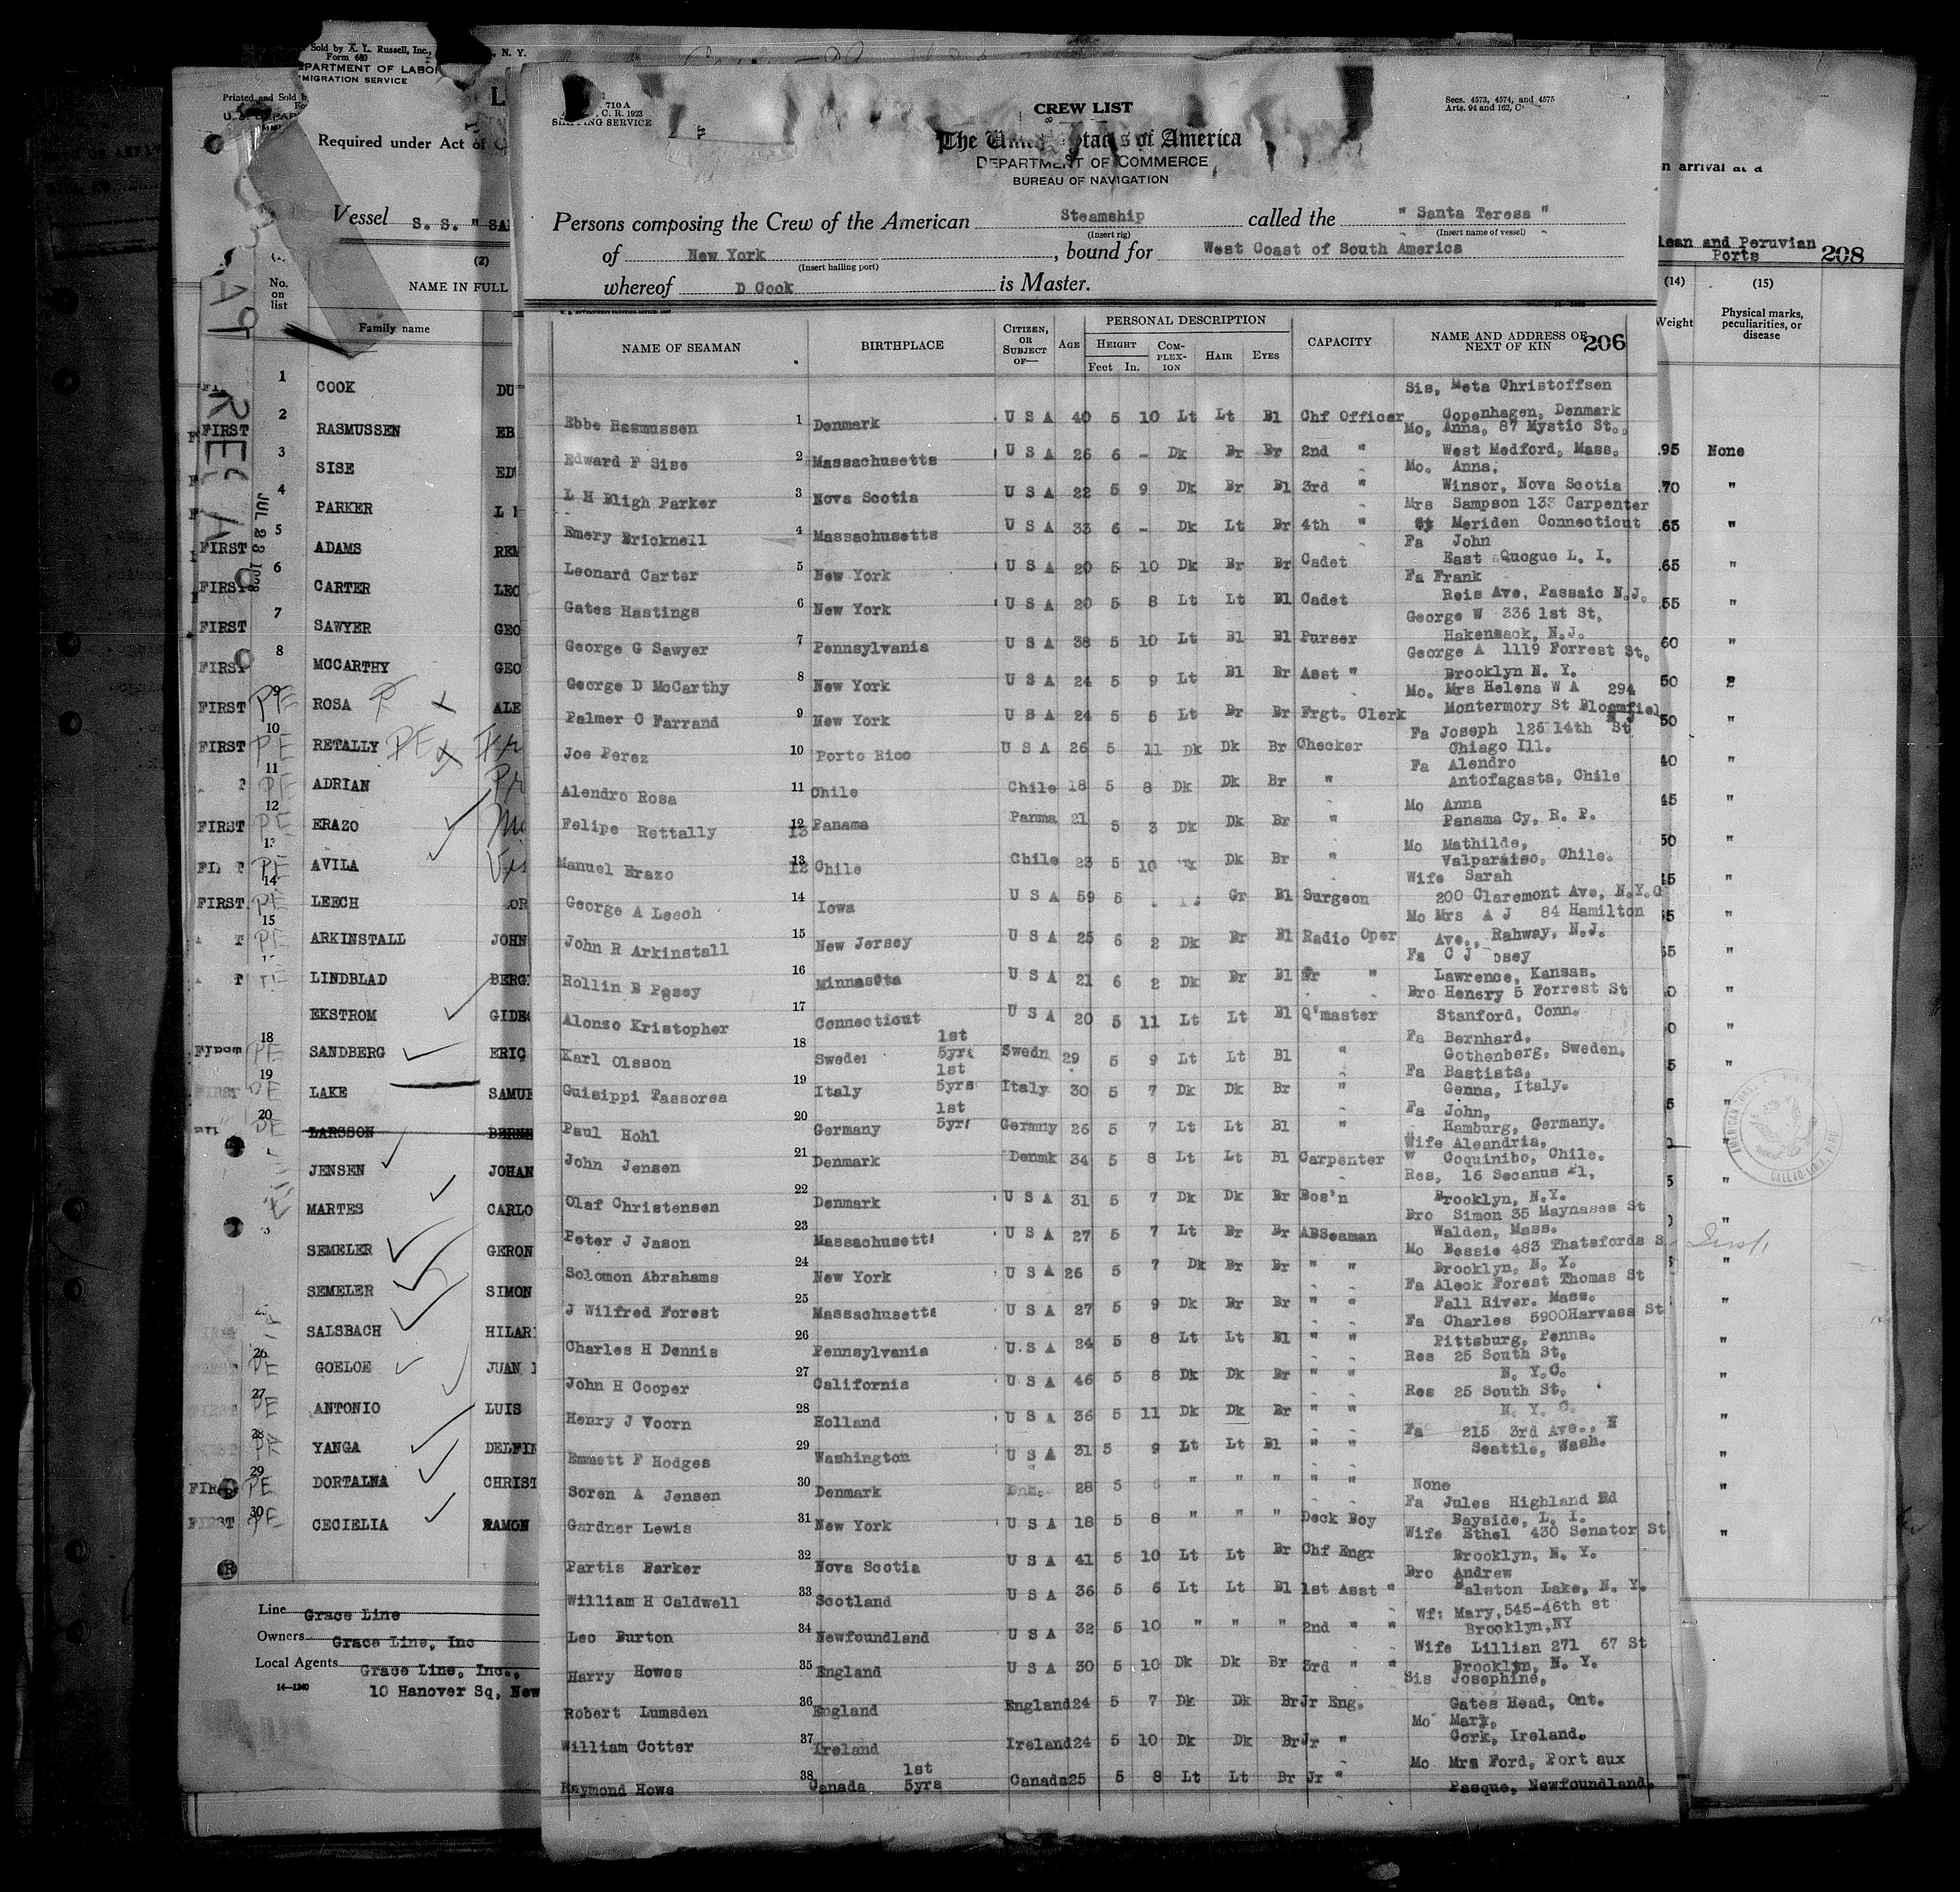 Sold by A. L. Russell, Inc., N. Y.
Form 680
DEPARTMENT OF LABOR
IMMIGRATION SERVICE
Printed and Sold by
Required under Act of
Vessel S. S. "
(2)
No. on list
NAME IN FULL
Family name
1 COOK DU
2 FIRST RASMUSSEN EB
3 SISE
4 PARKER L
5 FIRST ADAMS REM
6 FIRST CARTER LEO
7 FIRST SAWYER GEO
8 FIRST MCCARTHY GEO
9 FIRST PE ROSA ALE
10 FIRST PE RETALLY PE
11 PE ADRIAN
12 FIRST PE ERAZO
PE AVILA
14 FIRST PE LEECH
15 PE ARKINSTALL JOHN
LINDBLAD
EKSTROM
18 FIRST PE SANDBERG ERIC
19 FIRST PE LAKE
20 PE LARSSON
JENSEN JOHAN
MARTES CARLO
SEMELER GERON
SEMELER SIMON
SALSBACH HILAR
26 PE GOELOE JUAN
27 PE ANTONIO LUIS
28 PE YANGA DELFIN
29 PE DORTALNA CHRIST
30 FIRST PE CECIELIA RAMON
Line Grace Line
Owners Grace Line, Inc
Local Agents Grace Line, Inc.,
14-1240
10 Hanover Sq, New
710 A
C. R. 1923
SHIPPING SERVICE
Secs. 4573, 4574, and 4575
CREW LIST
The United States of America
DEPARTMENT OF COMMERCE
BUREAU OF NAVIGATION
Persons composing the Crew of the American Steamship called the " Santa Teresa "
(Insert rig) (Insert name of vessel)
of New York, bound for West Coast of South America
(Insert hailing port)
whereof D Cook is Master.
NAME OF SEAMAN BIRTHPLACE CITIZEN, OR SUBJECT OF— AGE PERSONAL DESCRIPTION CAPACITY NAME AND ADDRESS OF NEXT OF KIN 206
HEIGHT COMPLEXION HAIR EYES
Feet In.
Sis, Meta Christoffsen
Ebbe Rasmussen 1 Denmark U S A 40 5 10 Lt Lt Bl Chf Officer Copenhagen, Denmark
Mo, Anna, 87 Mystic St.,
Edward F Sise 2 Massachusetts U S A 26 6 - Dk Br Br 2nd " West Medford, Mass.
Mo. Anna,
L H Bligh Parker 3 Nova Scotia U S A 22 5 9 Dk Br Bl 3rd " Winsor, Nova Scotia
Mrs Sampson 133 Carpenter
Emery Bricknell 4 Massachusetts U S A 33 6 - Dk Lt Br 4th " St Meriden Connecticut
Fa John
Leonard Carter 5 New York U S A 20 5 10 Dk Br Br Cadet East Quogue L. I.
Fa Frank
Gates Hastings 6 New York U S A 20 5 8 Lt Lt Bl Cadet Reis Ave, Passaic N.J.
George W 336 1st St,
George G Sawyer 7 Pennsylvania U S A 38 5 10 Lt Bl Bl Purser Hakensack, N.J.
George A 1119 Forrest St,
George D McCarthy 8 New York U S A 24 5 9 Lt Bl Br Asst " Brooklyn N. Y.
Mo. Mrs Helena W A 294
Palmer C Farrand 9 New York U S A 24 5 5 Lt Br Br Frgt. Clerk Montermory St Bloomfiel
Fa Joseph 126 14th St
Joe Perez 10 Porto Rico U S A 26 5 11 Dk Dk Br Checker Chiago Ill.
Fa Alendro
Alendro Rosa 11 Chile Chile 18 5 8 Dk Dk Br " Antofagasta, Chile
Mo Anna
Felipe Rettally 12 13 Panama Panma 21 5 3 Dk Dk Br " Panama Cy, R. P.
Mo Mathilde,
Manuel Erazo 13 12 Chile Chile 23 5 10 Dk Br " Valparaiso, Chile.
Wife Sarah
George A Leech 14 Iowa U S A 59 5 Gr Bl Surgeon 200 Claremont Ave, N.Y.C
Mo Mrs A J 84 Hamilton
John R Arkinstall 15 New Jersey U S A 25 6 2 Dk Br Bl Radio Oper Ave., Rahway, N.J.
Fa C J osey
Rollin B Posey 16 Minnasota U S A 21 6 2 Dk Br Bl " Lawrence, Kansas.
Bro Henery 5 Forrest St
Alonzo Kristopher 17 Connecticut U S A 20 5 11 Lt Lt Bl Q'master Stanford, Conn.
1st Fa Bernhard,
Karl Olsson 18 Sweden 5yrs Swedn 29 5 9 Lt Lt Bl " Gothenberg, Sweden.
1st Fa Bastista,
Guisippi Tassorea 19 Italy 5yrs Italy 30 5 7 Dk Dk Br " Genna, Italy.
1st Fa John,
Paul Hohl 20 Germany 5yrs Germany 26 5 7 Lt Lt Bl " Hamburg, Germany.
Wife Aleandria,
John Jensen 21 Denmark Denmk 34 5 8 Lt Lt Bl Carpenter " Coquinibo, Chile.
Res, 16 Secanus Pl,
Olaf Christensen 22 Denmark U S A 31 5 7 Dk Dk Br Bos'n Brooklyn, N.Y.
Bro Simon 35 Maynases St
Peter J Jason 23 Massachusetts U S A 27 5 7 Lt Br Br ABSeaman Walden, Mass.
Mo Bessie 483 Thatsfords S
Solomon Abrahams 24 New York U S A 26 5 7 Dk Br Br " " Brooklyn, N. Y.
Fa Aleck Forest Thomas St
J Wilfred Forest 25 Massachusetts U S A 27 5 9 Dk Br Br " " Fall River. Mass.
Fa Charles 5900Harvass St
Charles H Dennis 26 Pennsylvania U.S A 24 5 8 Lt Lt Bl " " Pittsburg, Penna.
Res 25 South St,
John H Cooper 27 California U S A 46 5 8 Dk Dk Br " " N. Y.C.
Res 25 South St,
Henry J Voorn 28 Holland U S A 36 5 11 Dk Dk Br " " N. Y. C.
Fa 215 3rd Ave., N
Emmett F Hodges 29 Washington U S A 31 5 9 Lt Lt Bl " " Seattle, Wash.
Soren A Jensen 30 Denmark 28 5 " " " " " None
Fa Jules Highland Rd
Gardner Lewis 31 New York U S A 18 5 8 " " " Deck Boy Bayside, L. I.
Wife Ethel 430 Senator St
Partis Barker 32 Nova Scotia U S A 41 5 10 Lt Lt Br Chf Engr Brooklyn, N. Y.
Bro Andrew
William H Caldwell 33 Scotland U S A 36 5 6 Lt Lt Bl 1st Asst " Balston Lake, N. Y.
Wf: Mary,545-46th st
Leo Burton 34 Newfoundland U S A 32 5 10 " " " 2nd " " Brooklyn,NY
Wife Lillian 271 67 St
Harry Howes 35 England U S A 30 5 10 Dk Dk Br 3rd " " Brooklyn, N. Y.
Sis Josephine,
Robert Lumsden 36 England England 24 5 7 Dk Dk Br Jr Eng. Gates Head, Ont.
Mo Mary,
William Cotter 37 Ireland Ireland 24 5 10 Dk Dk Br Jr " Cork, Ireland.
1st Mo Mrs Ford, Port aux
Raymond Howe 38 Canada 5yrs Canada 25 5 8 Lt Lt Br Jr " Pasque, Newfoundland.
n arrival at a
lean and Peruvian Ports 208
(14) (15)
Weight Physical marks, peculiarities, or disease
95 None
70 "
65 "
65 "
55 "
60 "
50 "
50 "
40 "
45 "
50 "